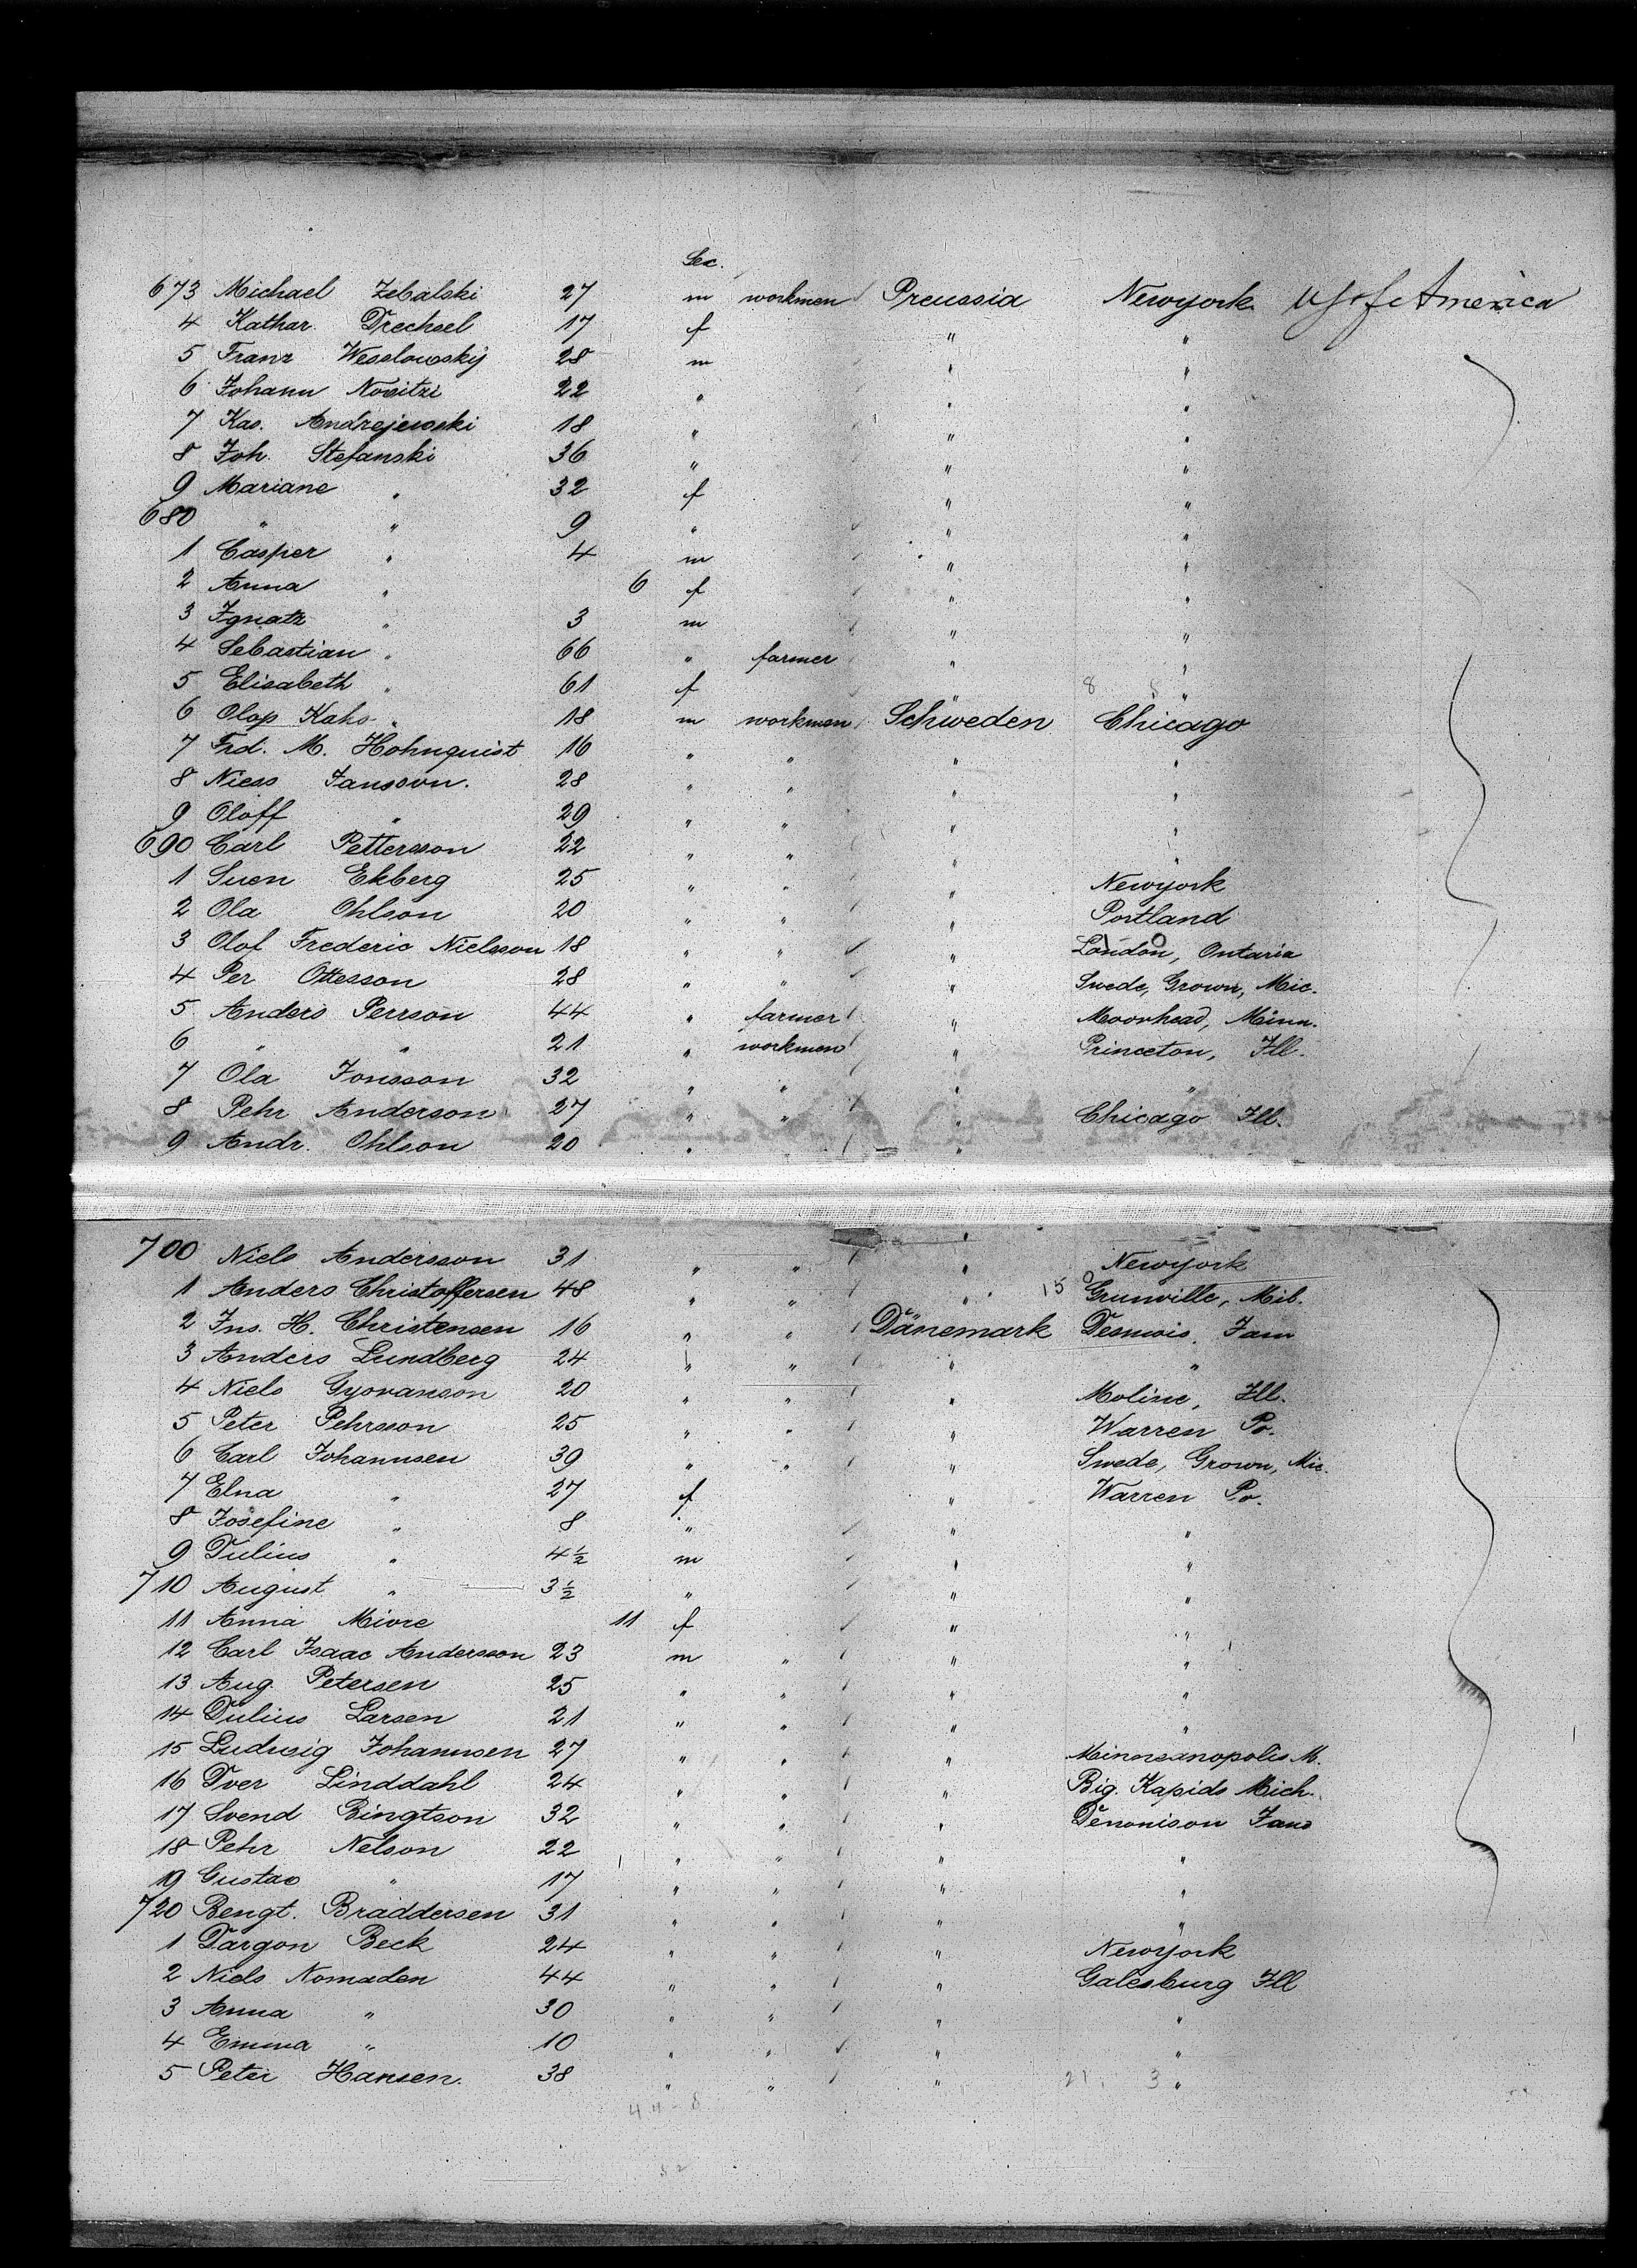 Sex.
673 Michael Zebalski 27 m workmen Preussia Newyork US of America
4 Kathar. Drechsel 17 f " "
5 Franz Weselowsky 28 m " "
6 Johann Novitzi 22 " " "
7 Kas. Andrejewski 18 " " "
8 Joh. Stefanski 36 " " "
9 Mariane " 32 f " "
680 " " 9 " " "
1 Casper " 4 m " "
2 Anna " 6 f " "
3 Ignatz " 3 m " "
4 Sebastian " 66 " farmer " "
5 Elisabeth " 61 f " "
6 Olop Kaho " 18 m workmen Schweden Chicago
7 Frd. M. Hohnquist 16 " " " "
8 Niess Jansson. 28 " " " "
9 Oloff " 29 " " " "
690 Carl Pettersson 22 " " " "
1 Suen Ekberg 25 " " " Newyork
2 Ola Ohlson 20 " " " Portland
3 Olof Frederic Nielsson 18 " " " London, Ontaria
4 Per Ottesson 28 " " " Swede, Grown, Mic.
5 Anders Perrson 44 " farmer " Moorhead, Minn.
6 " " 21 " workmen " Princeton, Ill.
7 Ola Jonsson 32 " " " "
8 Pehr Anderson 27 " " " Chicago Ill.
9 Andr. Ohlson 20 " "
700 Niels Andersson 31 " " " Newyork
1 Anders Christoffersen 48 " " " Grunville, Mib.
2 Jns. H. Christensen 16 " " Dänemark Desmois. Jam
3 Anders Lundberg 24 " " " "
4 Niels Gyovanson 20 " " " Moline, Ill.
5 Peter Pehrsson 25 " " " Warren Po.
6 Carl Johannsen 39 " " " Swede, Grown, Mic.
7 Elna " 27 f " Warren Po.
8 Josefine " 8 " " "
9 Julius " 4½ m " "
710 August " 3½ " " "
11 Anna Mivre 11 f " "
12 Carl Isaac Andersson 23 m " " "
13 Aug. Petersen 25 " " " "
14 Julius Larsen 21 " " " "
15 Ludwig Johannsen 27 " " " Minneanopolis M.
16 Iver Linddahl 24 " " " Big. Kapids Mich.
17 Svend Bingtson 32 " " " Denonison Jano
18 Pehr Nelson 22 " " " "
19 Gustav " 17 " " " "
720 Bengt. Braddersen 31 " " " "
1 Jargon Beck 24 " " " Newyork
2 Niels Nomaden 44 " " " Galesburg Ill
3 Anna " 30 " " " "
4 Emma " 10 " " " "
5 Peter Hansen. 38 " " " "